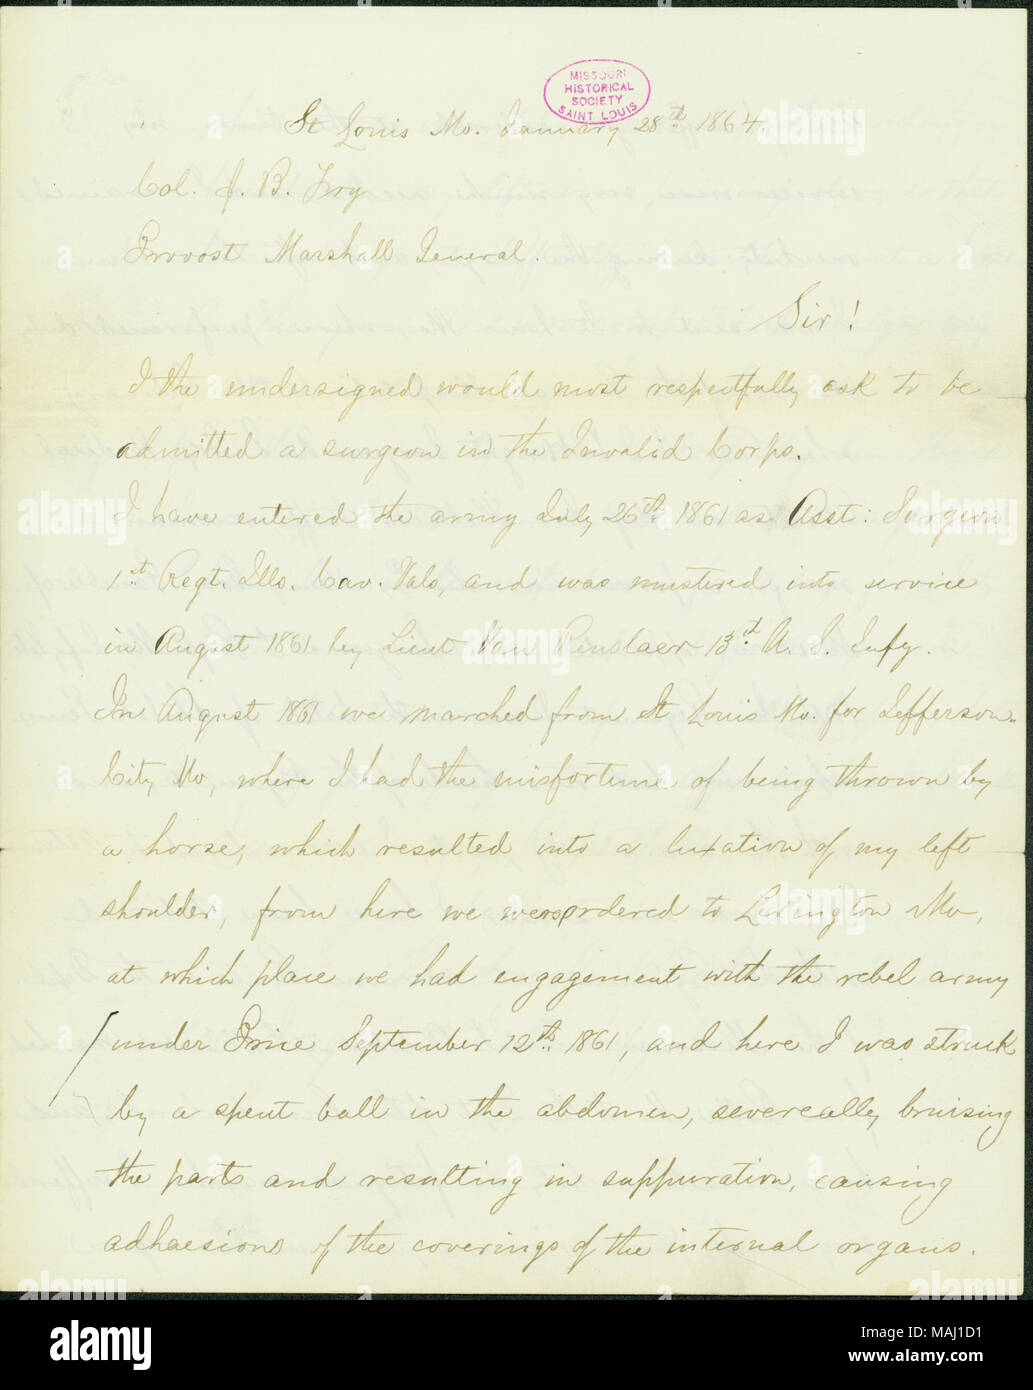 MISSOURI
HISTORICAL
SOCIETY
SAINT LOUIS
St Louis Mo. January 28th 1864.
Col. J. B. Fry
Provost Marshall General.
Sir!
I the undersigned would most respectfully ask to be
admitted a surgeon in the Invalid Corps.
I have entered the army July 26th 1861 as Asst: Surgeon
1st Regt. Ills. Cav. Vols, and was mustered into service
in August 1861 by Lieut Van Renslaer 13d U. S. Infy.
In August 1861 we marched from St Louis Mo. for Jefferson-
City Mo, where I had the misfortune of being thrown by
a horse, which resulted into a luxation of my left
shoulder, from here we were ordered to Lexington Mo,
at which place we had engagement with the rebel army
under Price September 12th 1861, and here I was struck
by a spent ball in the abdomen, severeally bruising
the parts and resulting in suppuration, causing
adhaesions of the coverings of the internal organs.
alamy
Image ID: MAJ1D1
www.alamy.com